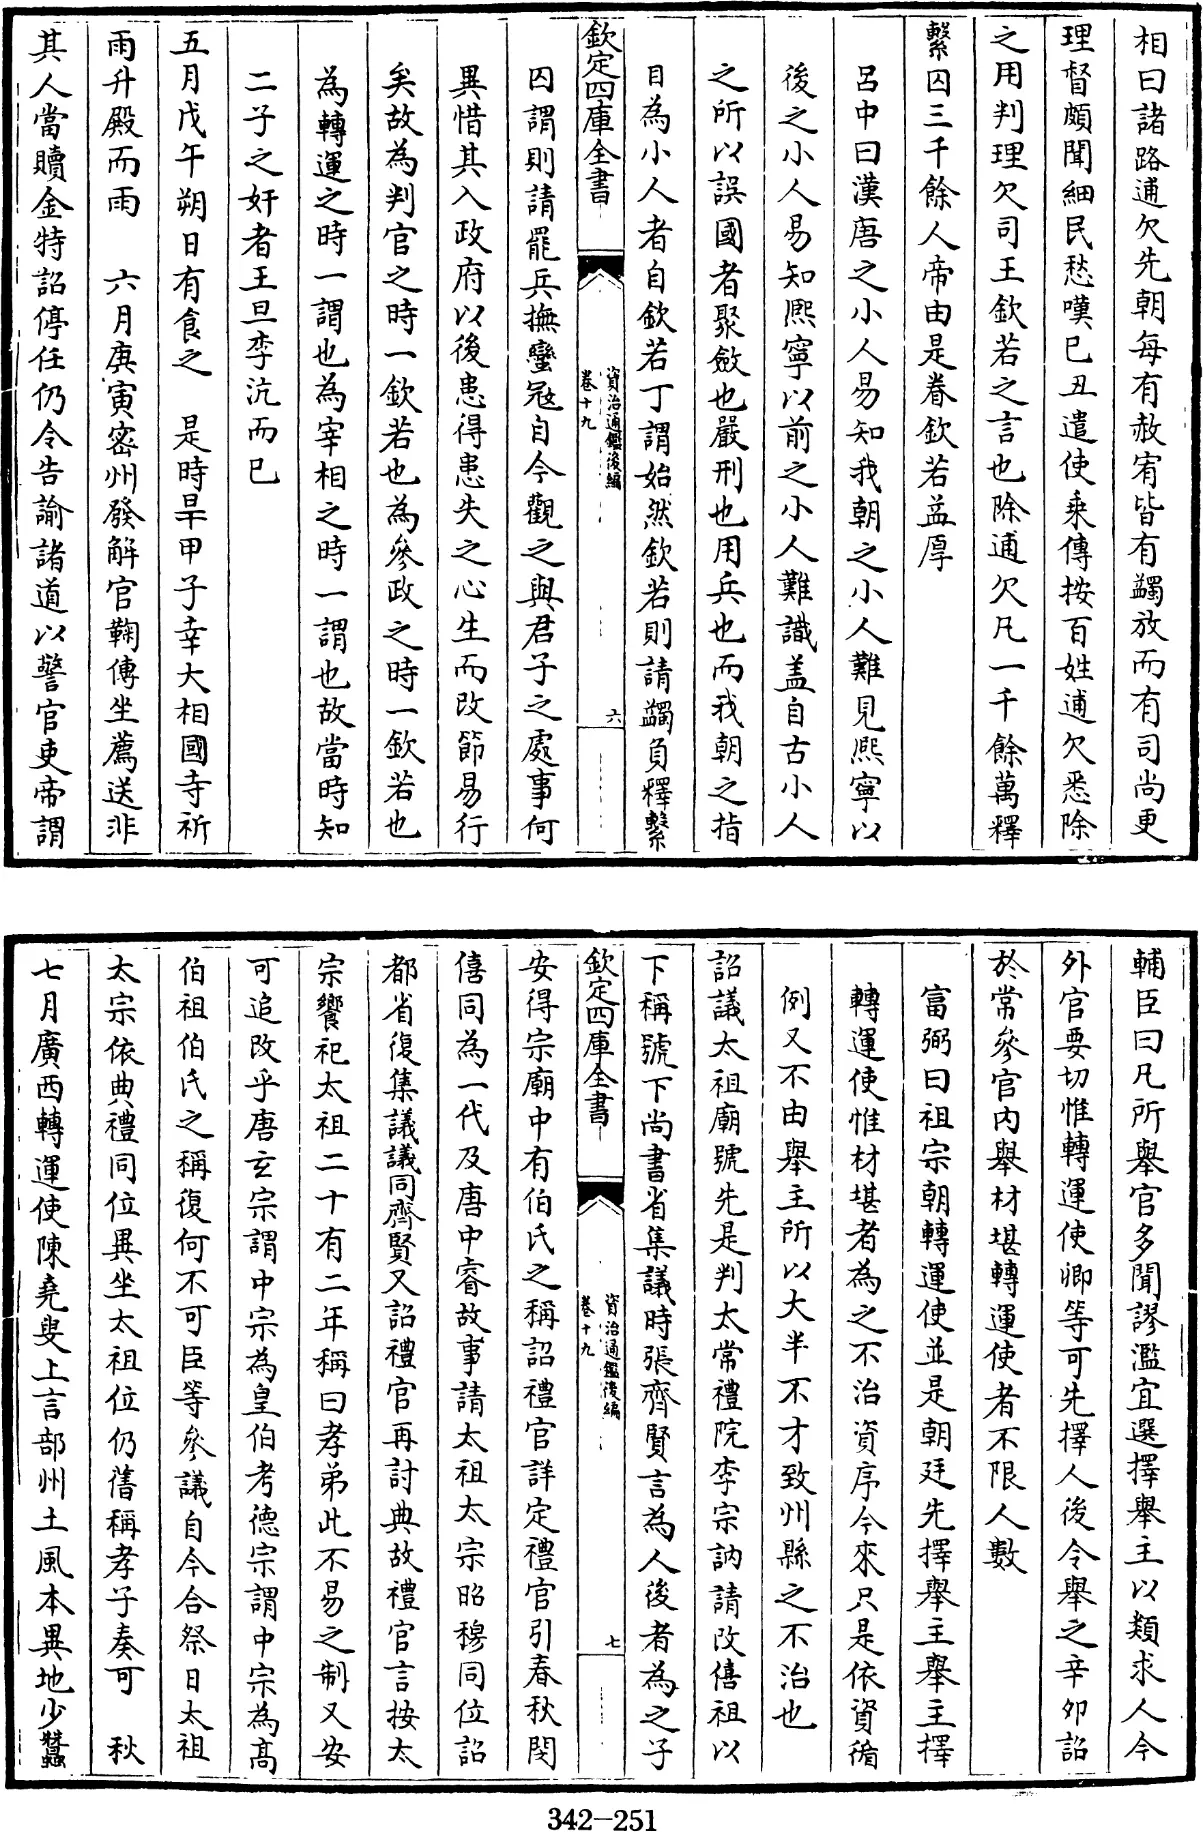 相曰諸路逋欠先朝每有赦宥皆有蠲放而有司尚更
理督頗聞細民愁嘆己丑遣使乘傳按百姓逋欠悉除
之用判理欠司王欽若之言也除逋欠凡一千餘萬釋
繫囚三千餘人帝由是眷欽若益厚
呂中曰漢唐之小人易知我朝之小人難見熙寧以
後之小人易知熙寧以前之小人難識盖自古小人
之所以誤國者聚斂也嚴刑也用兵也而我朝之指
目為小人者自欽若丁謂始然欽若則請蠲負釋繫
欽定四庫全書
資治通鑑後編
卷十九
六
囚謂則請罷兵撫蠻冦自今觀之與君子之處事何
異惜其入政府以後患得患失之心生而改節易行
矣故為判官之時一欽若也為參政之時一欽若也
為轉運之時一謂也為宰相之時一謂也故當時知
二子之奸者王旦李沆而已
五月戊午朔日有食之　是時旱甲子幸大相國寺祈
雨升殿而雨　六月庚寅密州發解官鞠傅坐薦送非
其人當贖金特詔停任仍令告諭諸道以警官吏帝謂
輔臣曰凡所舉官多聞謬濫宜選擇舉主以類求人今
外官要切惟轉運使卿等可先擇人後令舉之辛卯詔
於常參官內舉材堪轉運使者不限人數
富弼曰祖宗朝轉運使並是朝廷先擇舉主舉主擇
轉運使惟材堪者為之不治資序今來只是依資循
例又不由舉主所以大半不才致州縣之不治也
詔議太祖廟號先是判太常禮院李宗訥請改僖祖以
下稱號下尚書省集議時張齊賢言為人後者為之子
欽定四庫全書
資治通鑑後編
卷十九
七
安得宗廟中有伯氏之稱詔禮官詳定禮官引春秋閔
僖同為一代及唐中睿故事請太祖太宗昭穆同位詔
都省復集議議同齊賢又詔禮官再討典故禮官言按太
宗饗祀太祖二十有二年稱曰孝弟此不易之制又安
可追改乎唐玄宗謂中宗為皇伯考德宗謂中宗為高
伯祖伯氏之稱復何不可臣等參議自今合祭日太祖
太宗依典禮同位異坐太祖位仍舊稱孝子奏可　秋
七月廣西轉運使陳堯叟上言部州土風本異地少蠶
342-251